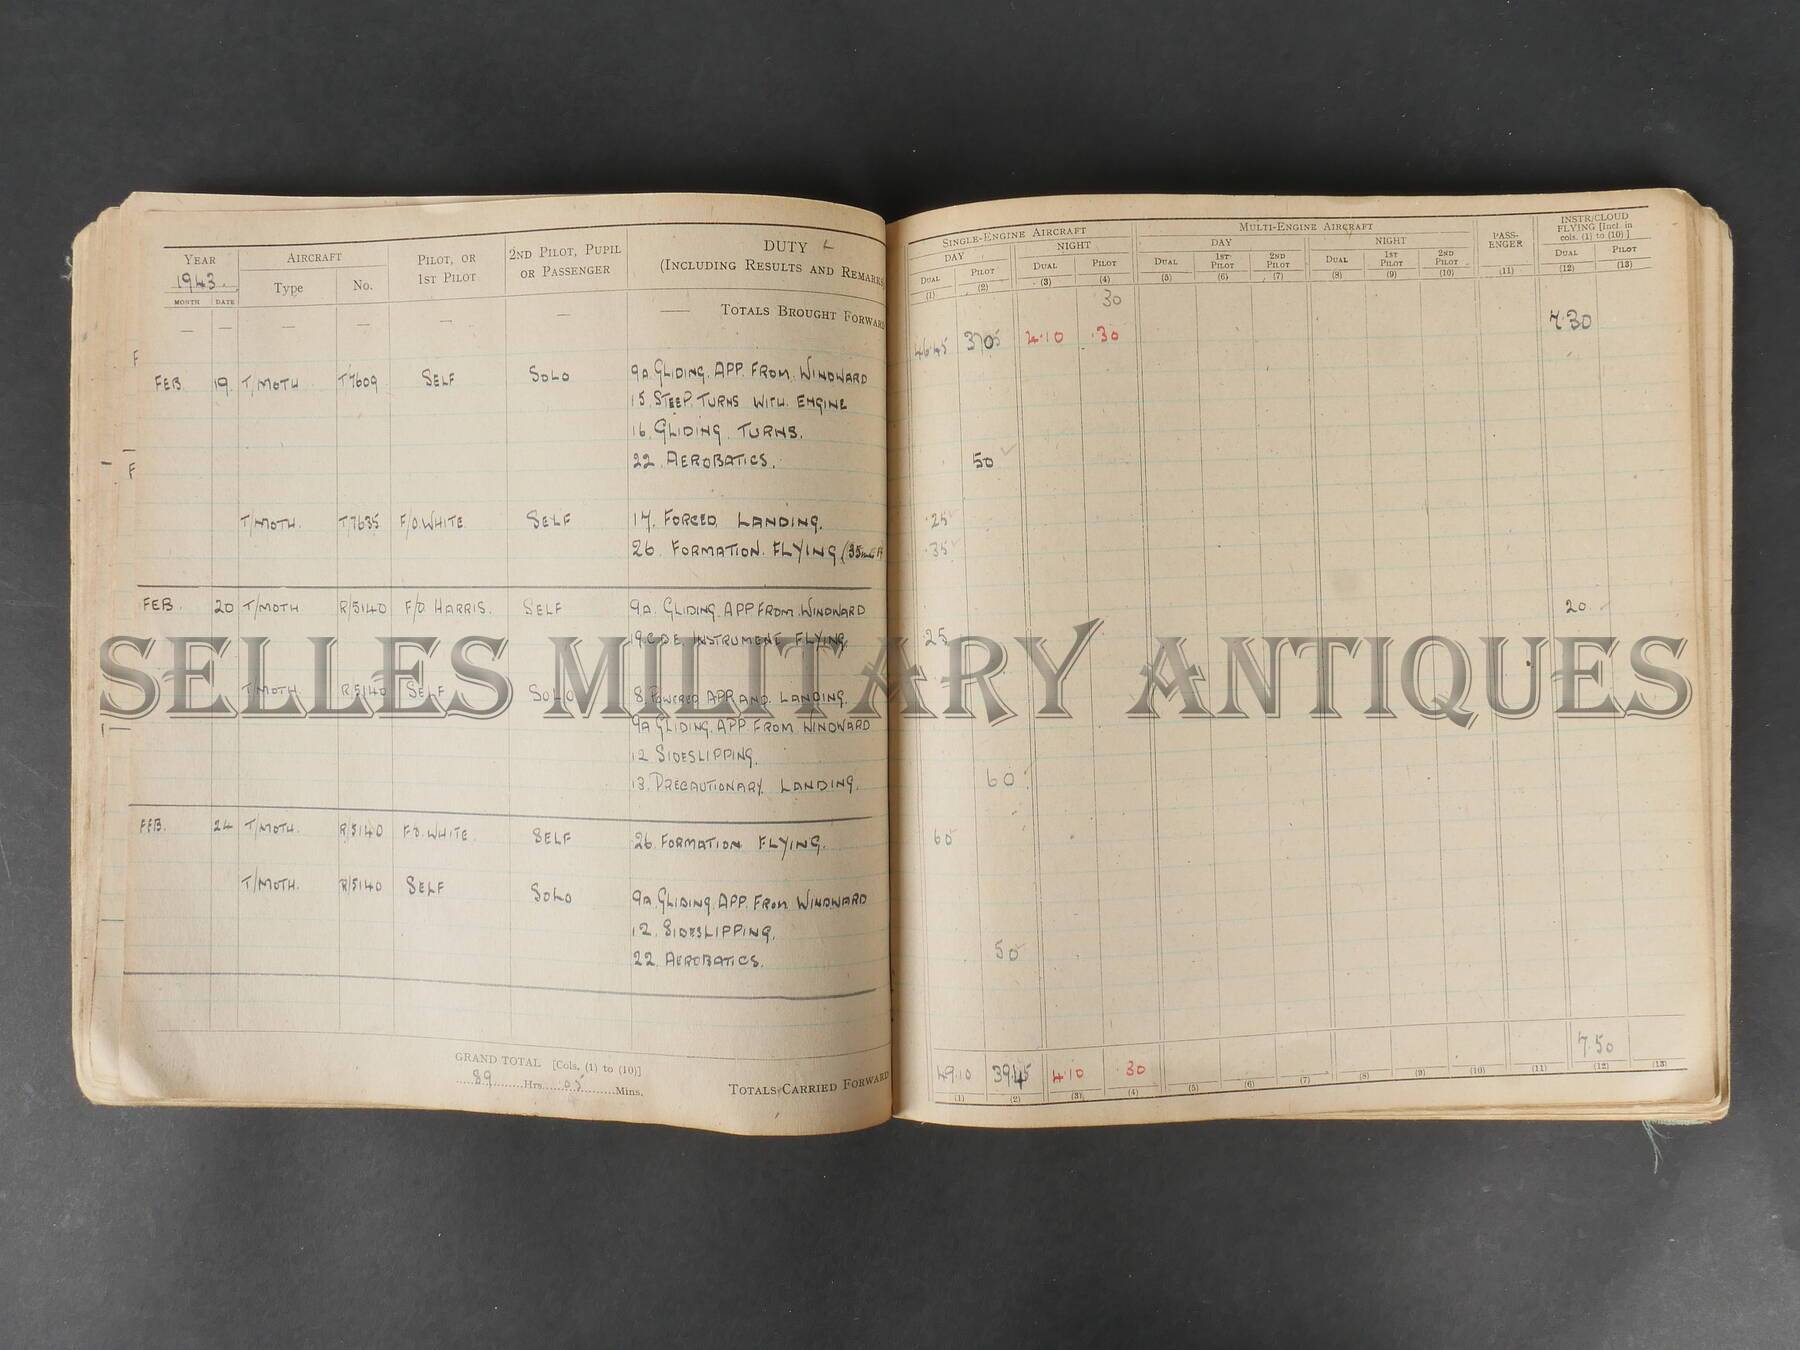 YEAR AIRCRAFT PILOT, OR 1ST PILOT 2ND PILOT, PUPIL OR PASSENGER DUTY (INCLUDING RESULTS AND REMARKS)
1943. Type No.
MONTH DATE
— — — — — — —— TOTALS BROUGHT FORWARD
FEB. 19. T/MOTH T7609 SELF SOLO 9A. GLIDING. APP. FROM. WINDWARD
15. STEEP. TURNS WITH. ENGINE
16. GLIDING. TURNS.
22. AEROBATICS.
T/MOTH. T7635 F/O. WHITE SELF 17. FORCED. LANDING.
26. FORMATION. FLYING
FEB. 20 T/MOTH R/5140 F/O. HARRIS. SELF 9A. GLIDING. APP FROM. WINDWARD
19. C.D.E. INSTRUMENT FLYING.
T/MOTH R/5140 SELF SOLO 8. POWERED APP. AND LANDING.
9A GLIDING. APP. FROM WINDWARD
12 SIDESLIPPING.
13. PRECAUTIONARY LANDING.
FEB. 24 T/MOTH. R/5140 F/O. WHITE. SELF 26. FORMATION FLYING.
T/MOTH. R/5140 SELF SOLO 9A. GLIDING. APP. FROM WINDWARD
12. SIDESLIPPING.
22. AEROBATICS.
GRAND TOTAL [Cols. (1) to (10)]
89 Hrs. 05 Mins.
TOTALS CARRIED FORWARD
SINGLE-ENGINE AIRCRAFT MULTI-ENGINE AIRCRAFT PASS-ENGER INSTR/CLOUD FLYING [Incl. in cols. (1) to (10)]
DAY NIGHT DAY NIGHT
DUAL PILOT DUAL PILOT DUAL 1ST PILOT 2ND PILOT DUAL 1ST PILOT 2ND PILOT DUAL PILOT
(1) (2) (3) (4) (5) (6) (7) (8) (9) (10) (11) (12) (13)
30
46.45 4.10 .30 7.30
50
.25
.35
20
.25
60
60
50
49.10 39.45 4.10 30 7.50
(1) (2) (3) (4) (5) (6) (7) (8) (9) (10) (11) (12) (13)
SELLES MILITARY ANTIQUES